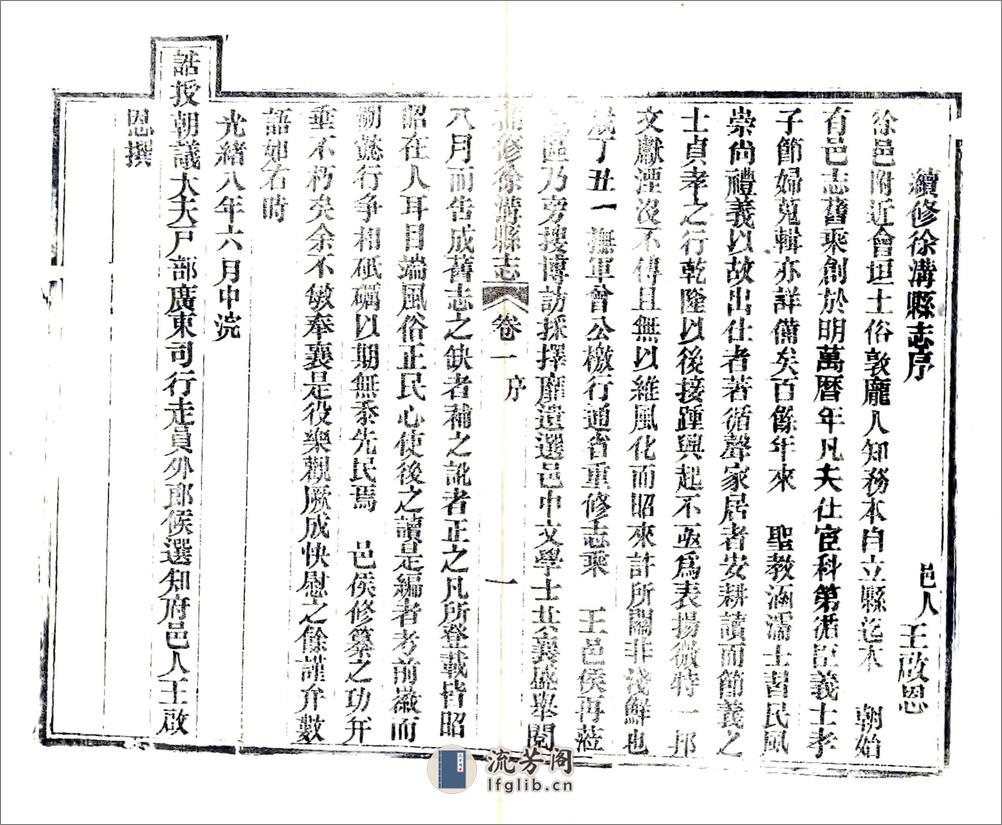 續修徐溝縣志序
邑人王啟恩
徐邑附近會垣土俗敦龐人知務本自立縣迄本 朝始
有邑志舊乘創於明萬曆年凡夫仕宦科第循臣義士孝
子節婦蒐輯亦詳備矣百餘年來 聖教涵濡士習民風
崇尚禮義以故出仕者著循聲家居者安耕讀而節義之
士貞孝之行乾隆以後接踵興起不亟為表揚微特一邦
文獻湮沒不傳且無以維風化而昭來許所關非淺鮮也
歲丁丑 撫軍曾公檄行通省重修志乘 王邑侯再蒞
區乃旁搜博訪採擇靡遺選邑中文學士共襄盛舉閱
補修徐溝縣志 卷一 序 一
八月而告成舊志之缺者補之訛者正之凡所登載皆昭
昭在人耳目端風俗正民心使後之讀是編者考前徽而
勵懿行爭相砥礪以期無忝先民焉 邑侯修纂之功并
垂不朽矣余不敏奉襄是役樂觀厥成快慰之餘謹弁數
語如右時
光緒八年六月中浣
誥授朝議大夫戶部廣東司行走員外郎候選知府邑人王啟
恩撰
流芳阁
lfglib.cn